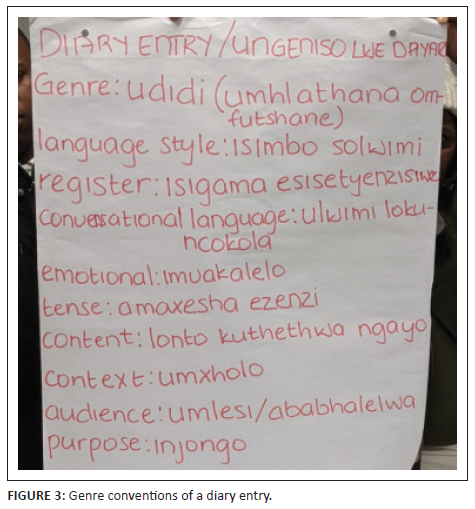 DIARY ENTRY/UNGENISO LWE DAYARI
Genre: udidi (umhlathana om-
futshane)
language style: isimbo solwimi
register: isigama esisetyenzisiwe
conversational language: ulwimi loku-
ncokola
emotional: imvakalelo
tense: amaxesha ezenzi
content: lonto kuthethwa ngayo
context: umxholo
audience: umlesi/ababhalelwa
purpose: injongo
FIGURE 3: Genre conventions of a diary entry.